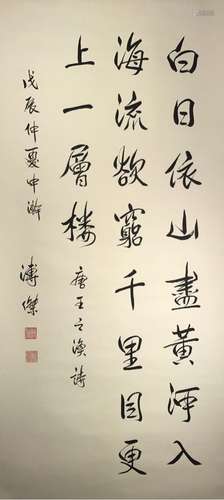 白日依山盡黃河入
海流欲窮千里目更
上一層樓 唐王之渙詩
戊辰仲夏中澣
溥傑